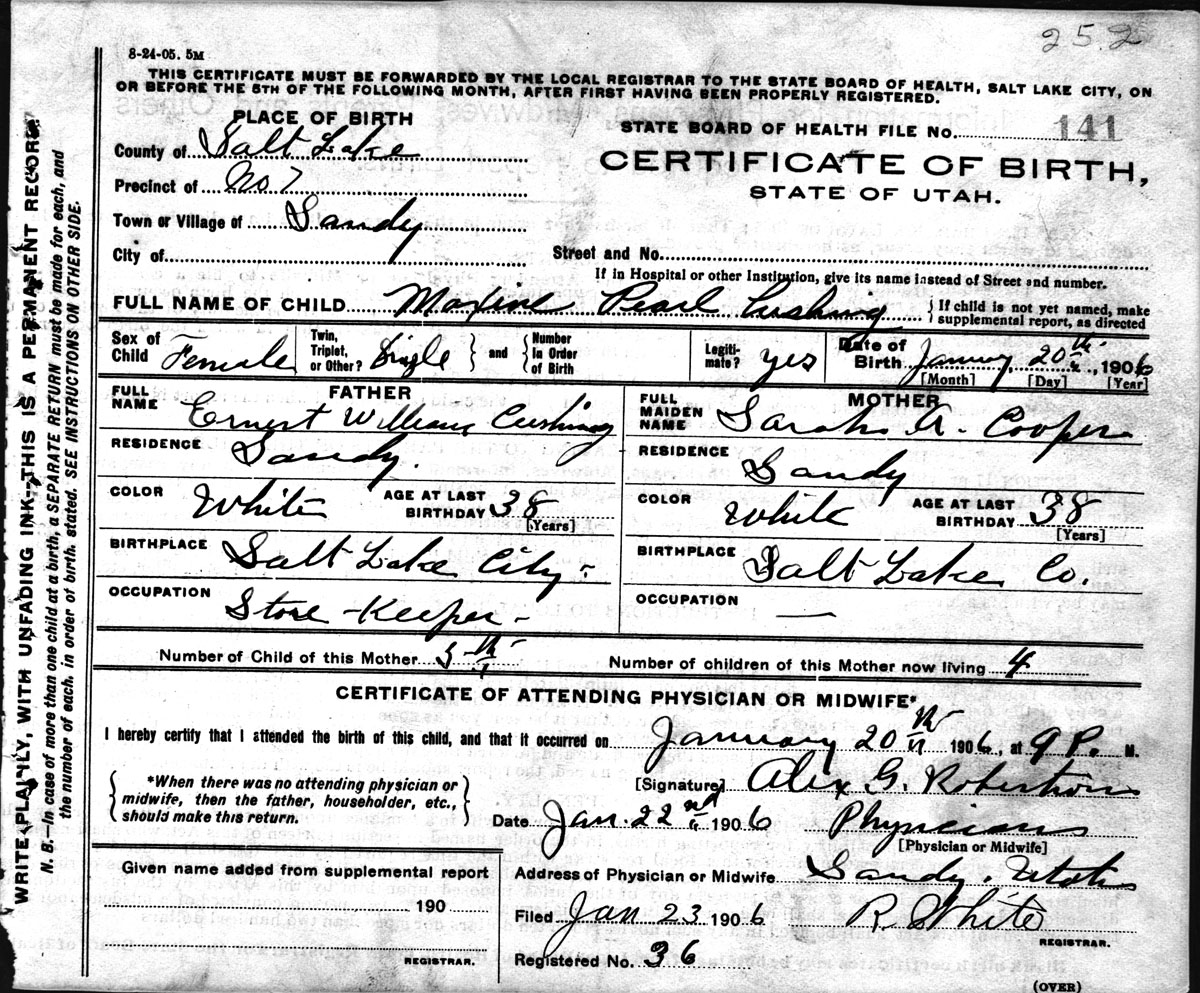 252
8-24-05. 5M
THIS CERTIFICATE MUST BE FORWARDED BY THE LOCAL REGISTRAR TO THE STATE BOARD OF HEALTH, SALT LAKE CITY, ON
OR BEFORE THE 5TH OF THE FOLLOWING MONTH, AFTER FIRST HAVING BEEN PROPERLY REGISTERED.
PLACE OF BIRTH
STATE BOARD OF HEALTH FILE No. 141
County of Salt Lake
CERTIFICATE OF BIRTH,
STATE OF UTAH.
Precinct of No 7
Town or Village of Sandy
City of
Street and No.
If in Hospital or other Institution, give its name instead of Street and number.
FULL NAME OF CHILD Maxine Pearl Cushing { If child is not yet named, make
supplemental report, as directed
Sex of Child Female
Twin, Triplet, or Other? Single } and { Number In Order of Birth
Legiti-mate? yes
Date of Birth January 20th, 1906
[Month] [Day] [Year]
FATHER
FULL NAME Ernest William Cushing
RESIDENCE Sandy.
COLOR White AGE AT LAST BIRTHDAY 38
[Years]
BIRTHPLACE Salt Lake City -
OCCUPATION Store-Keeper -
MOTHER
FULL MAIDEN NAME Sarah A. Cooper
RESIDENCE Sandy
COLOR White AGE AT LAST BIRTHDAY 38
[Years]
BIRTHPLACE Salt Lake Co.
OCCUPATION —
Number of Child of this Mother 5th
Number of children of this Mother now living 4
CERTIFICATE OF ATTENDING PHYSICIAN OR MIDWIFE*
I hereby certify that I attended the birth of this child, and that it occurred on January 20th 1906, at 9 P. M.
{ *When there was no attending physician or
midwife, then the father, householder, etc.,
should make this return. }
[Signature] Alex G. Robertson
Date Jan. 22nd 1906 Physician
[Physician or Midwife]
Given name added from supplemental report
190
REGISTRAR.
Address of Physician or Midwife Sandy. Utah
Filed Jan 23 1906 R. White
REGISTRAR.
Registered No. 36
(OVER)
WRITE PLAINLY, WITH UNFADING INK—THIS IS A PERMANENT RECORD.
N. B.—In case of more than one child at a birth, a SEPARATE RETURN must be made for each, and
the number of each, in order of birth, stated. SEE INSTRUCTIONS ON OTHER SIDE.